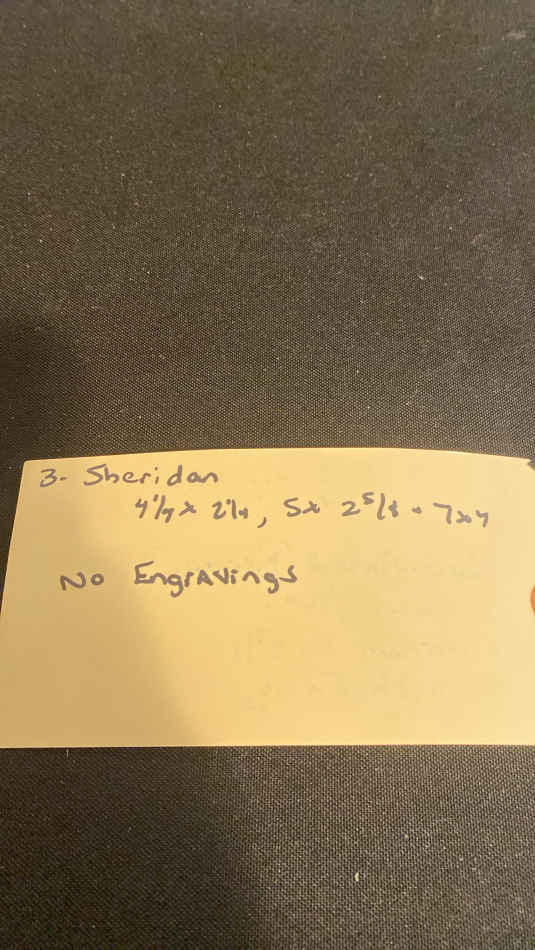 3- Sheridan
4 1/4 x 2 1/4, 5x 2 5/8 + 7x4
No Engravings